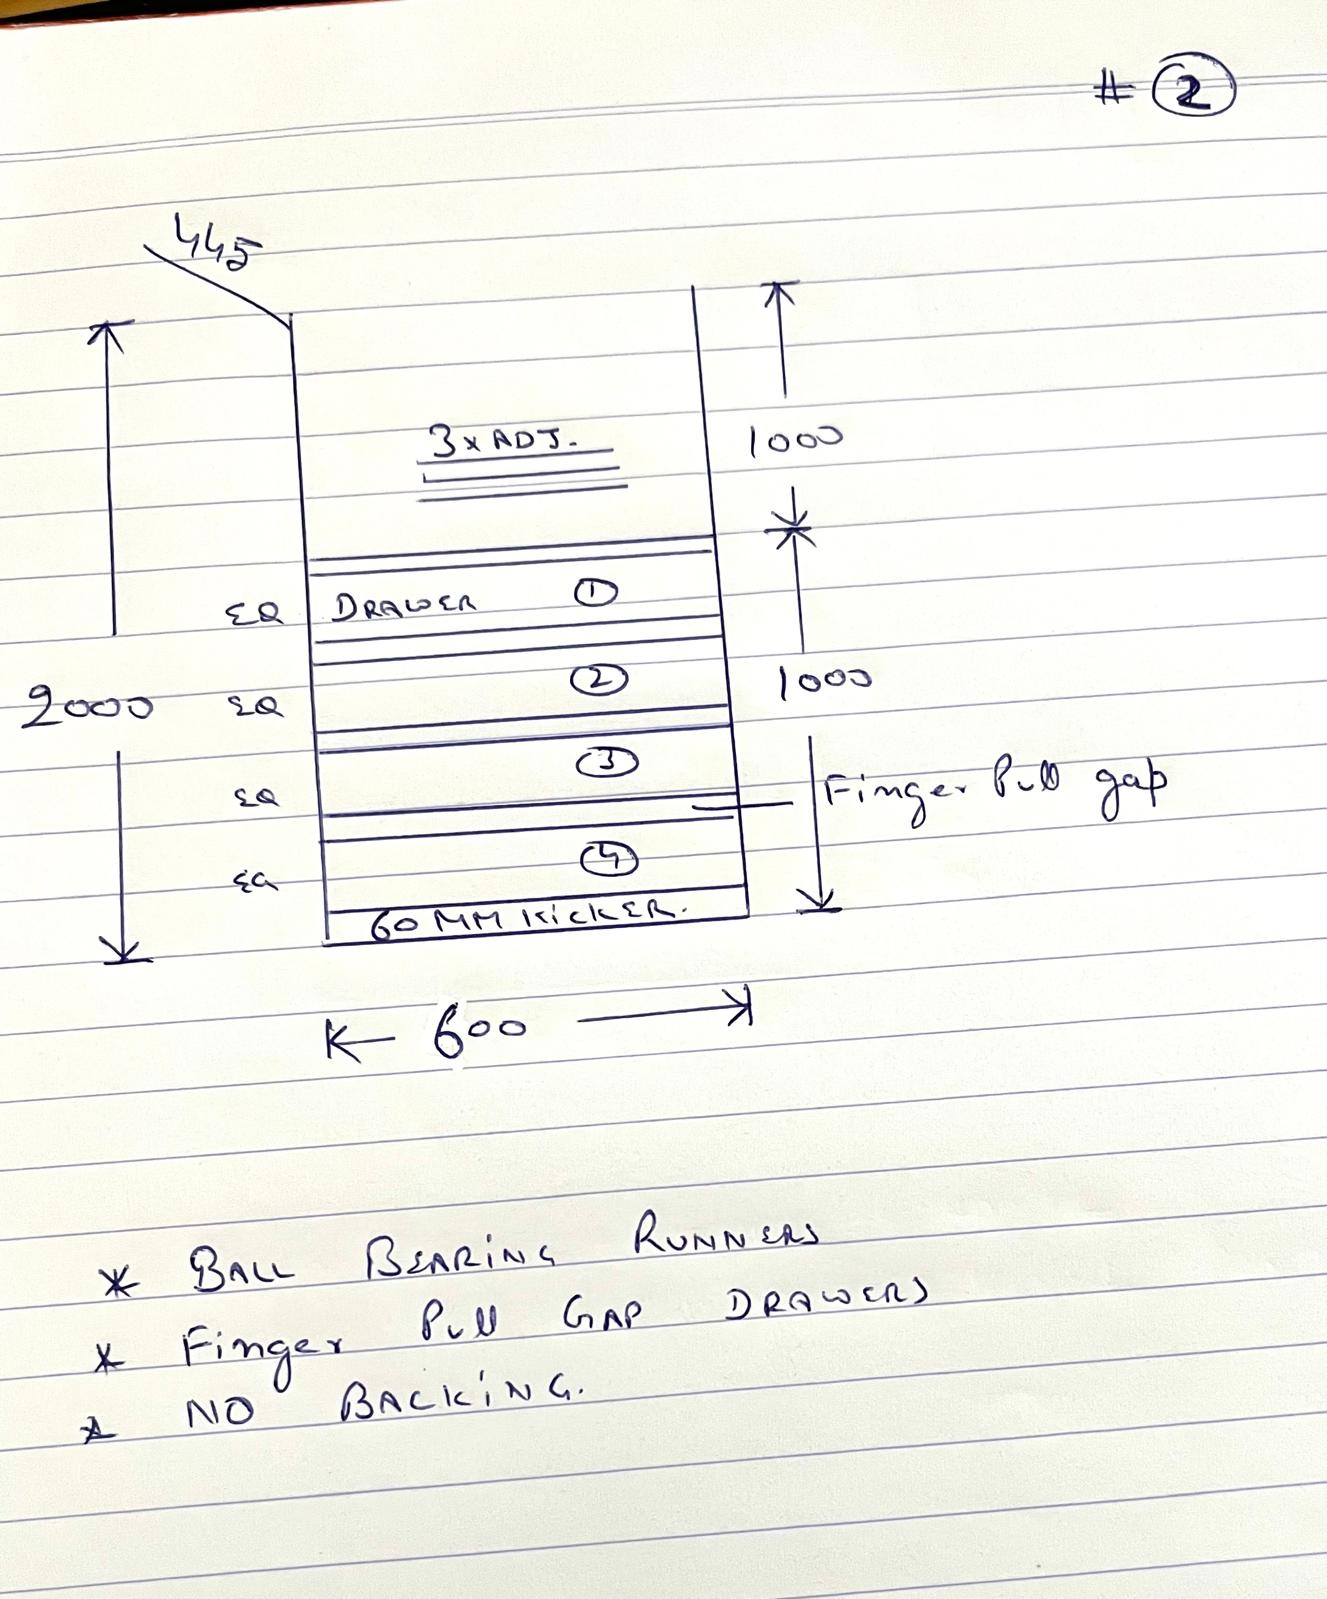 # 2
445
3 x ADJ.
1000
EQ DRAWER 1
2000 EQ 2 1000
EQ 3 Finger Pull gap
EQ 4
60 MM KICKER.
600
* BALL BEARING RUNNERS
* Finger Pull GAP DRAWERS
* NO BACKING.